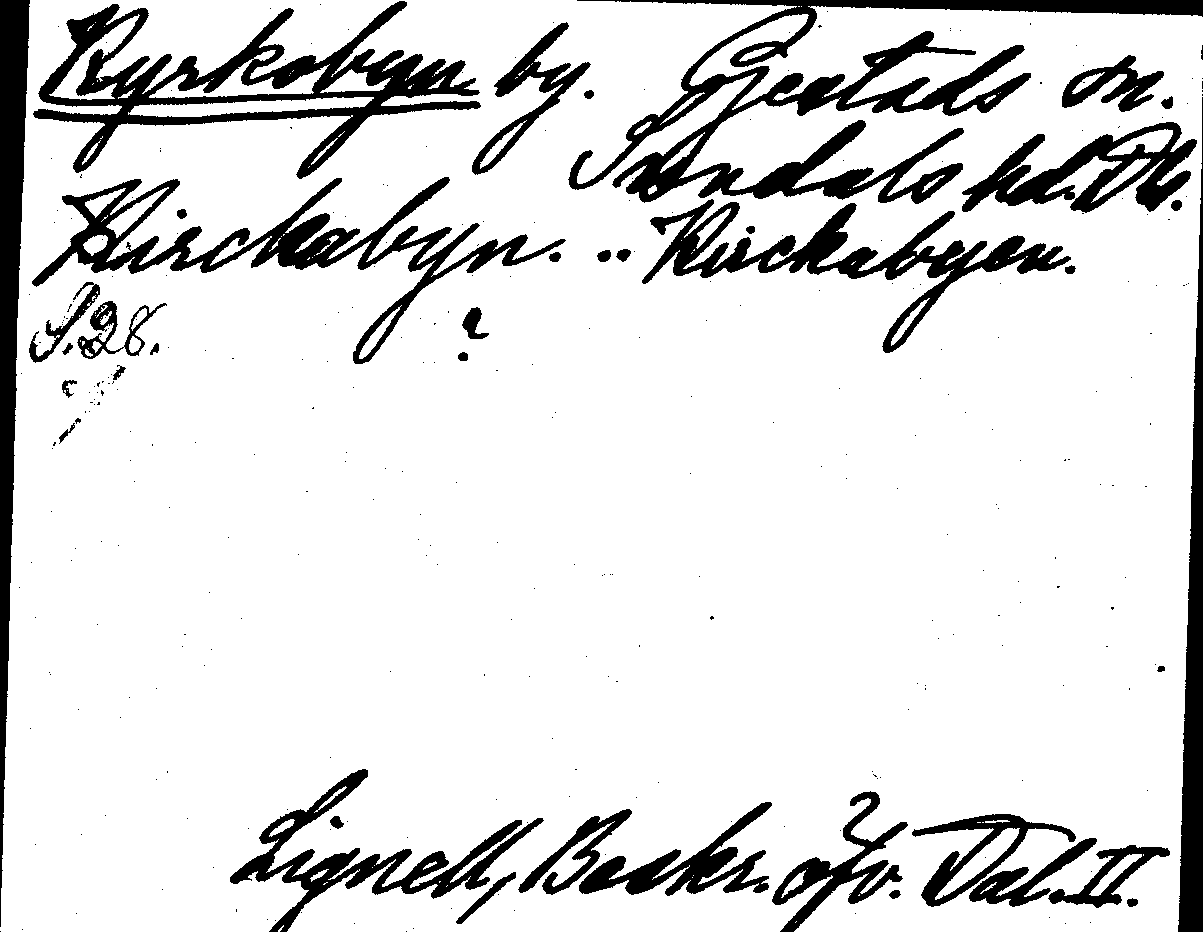 Kyrkobyn by. Gestads sn.
Sundals hd. Dls.
Kirckabyn. .. Kirckabyen.
S. 28. ?
Lignell, Beskr. öfv. Dal. II.